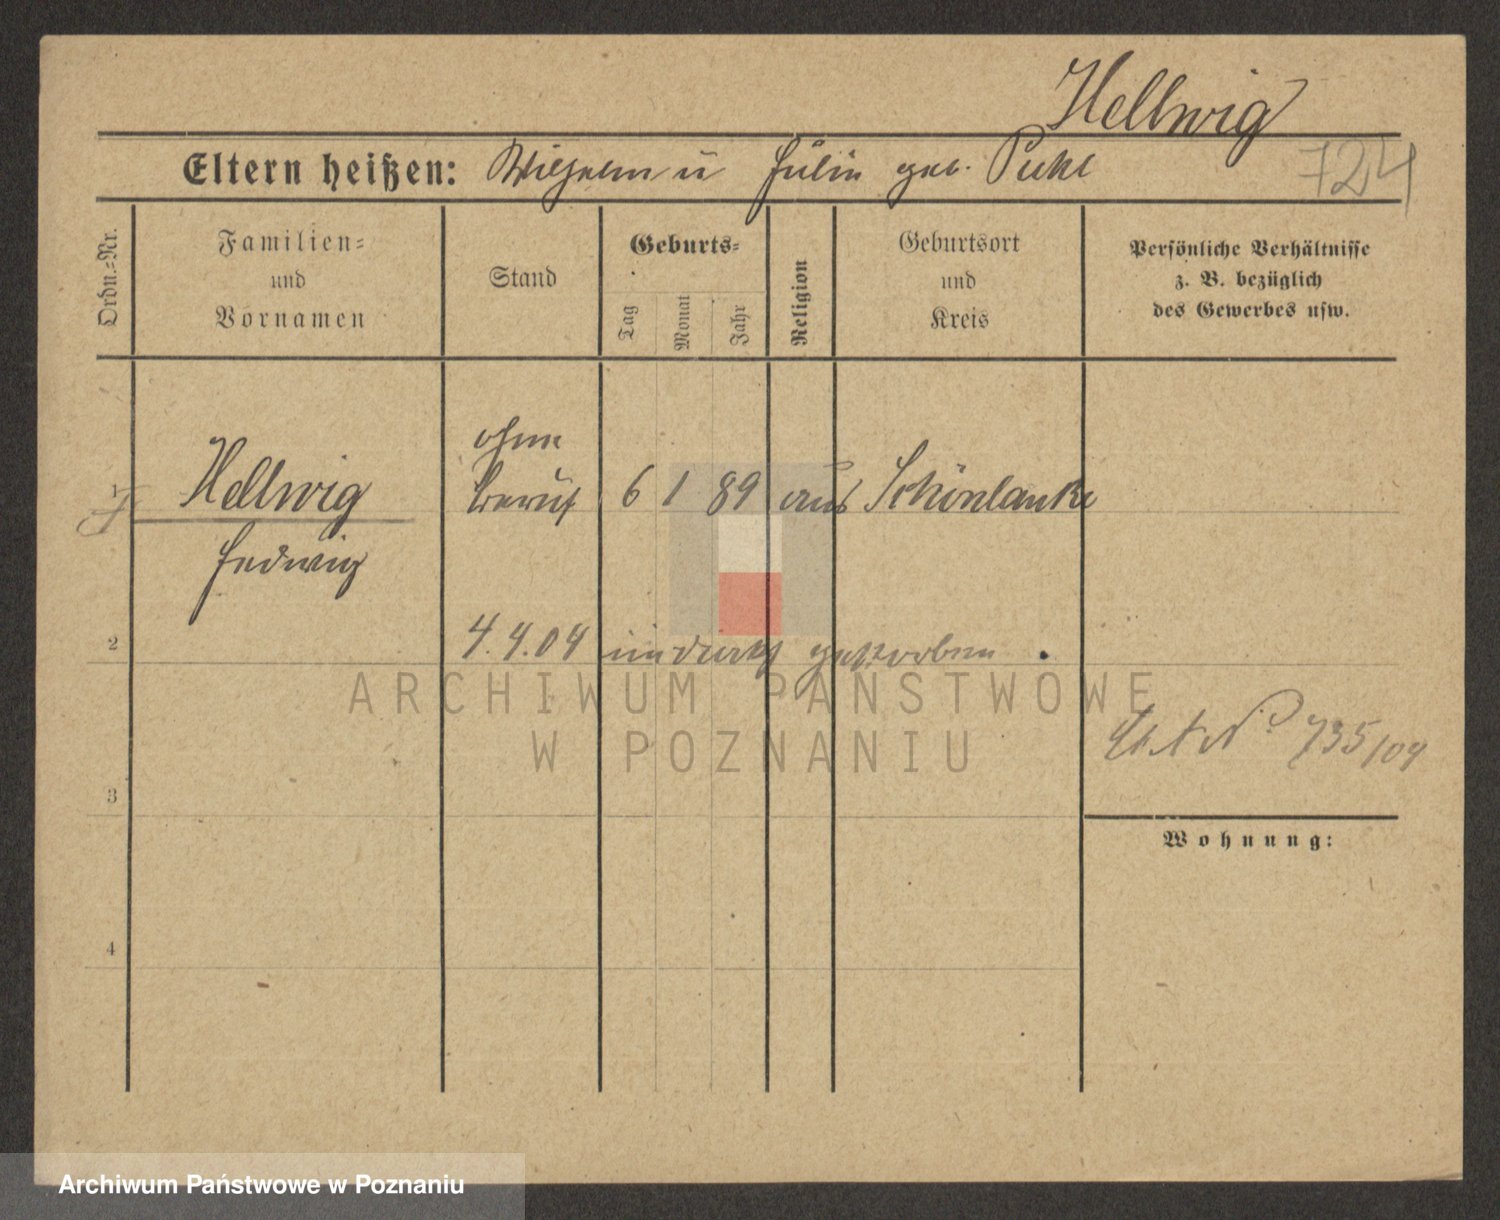 Hellwig
Eltern heißen: Wilhelm u Julie geb.
724
Ordn.=Nr.
Familien=
und
Vornamen
Stand
Geburts=
Tag
Monat
Jahr
Religion
Geburtsort
und
Kreis
Persönliche Verhältnisse
z. B. bezüglich
des Gewerbes usw.
1
Hellwig
Hedwig
ohne
Beruf
6 1 89 aus Schönlanke
2
4.4.04 gestorben.
ARCHIWUM PAŃSTWOWE
W POZNANIU
No 735/04
3
Wohnung:
4
Archiwum Państwowe w Poznaniu